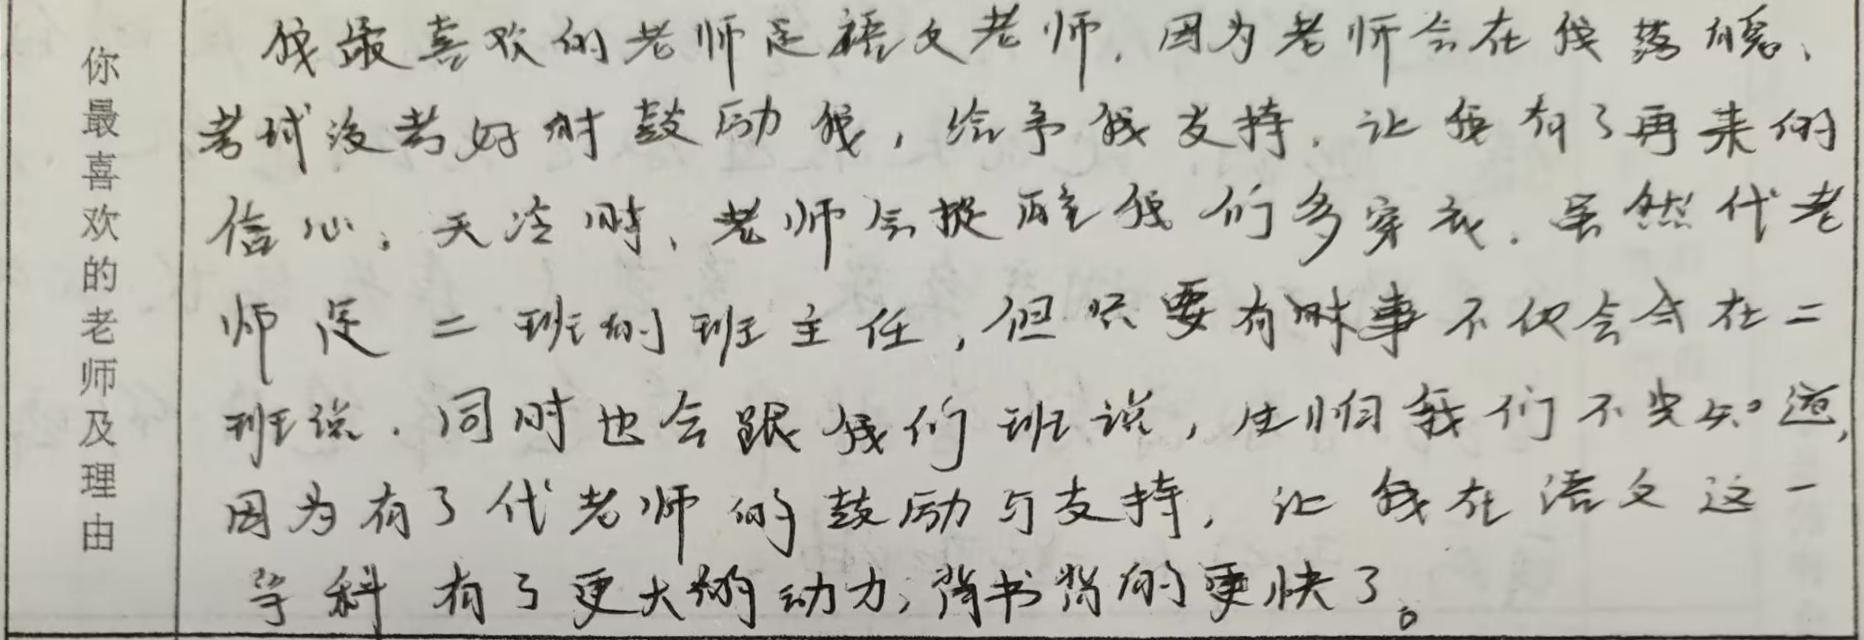 你最喜欢的老师及理由
我最喜欢的老师是语文老师,因为老师会在我落魄、
考试没考好时鼓励我,给予我支持,让我有了再来的
信心。天冷时、老师会提醒我们多穿衣,虽然代老
师是二班的班主任,但只要有时事不仅会在二
班说,同时也会跟我们班说,生怕我们不知道,
因为有了代老师的鼓励与支持,让我在语文这一
学科有了更大的动力,背书背的更快了。